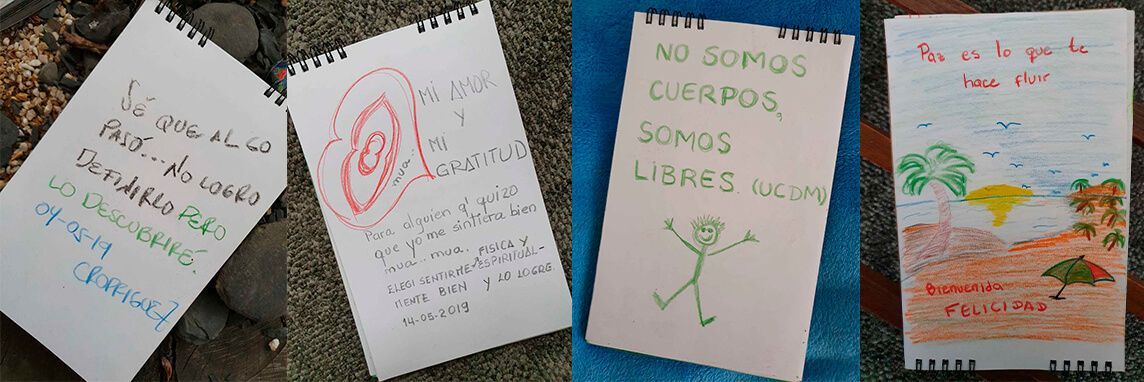 SÉ QUE ALGO
PASÓ... NO LOGRO
DEFINIRLO PERO
LO DESCUBRIRÉ.
04-05-19
CRODRIGUEZ
MI AMOR
Y
MI
GRATITUD
mua..
Para alguien q' quizo
que yo me sintiera bien
mua.. mua. FISICA Y
ELEGI SENTIRME ESPIRITUAL-
MENTE BIEN Y LO LOGRE.
14-05-2019
NO SOMOS
CUERPOS,
SOMOS
LIBRES. (UCDM)
Paz es lo que te
hace fluir
Bienvenida
FELICIDAD